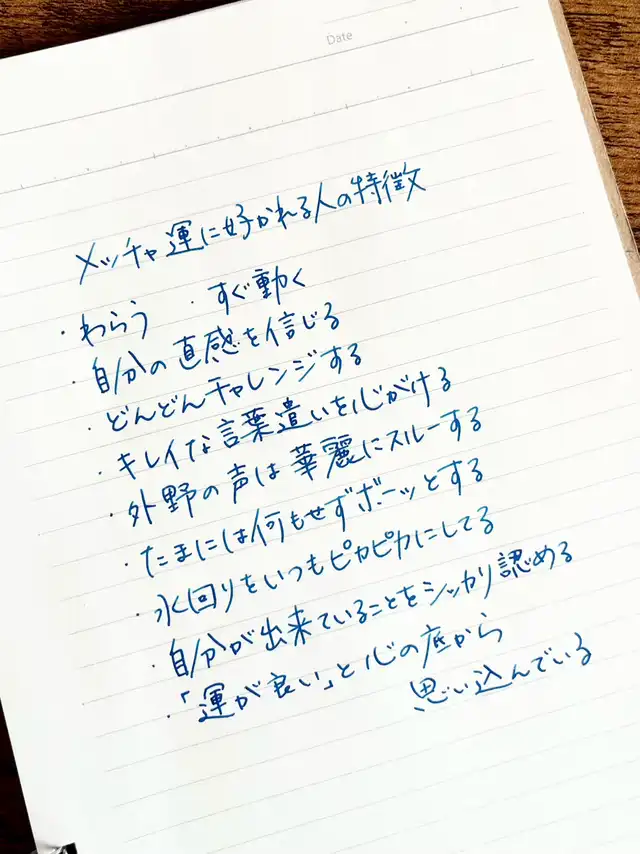 Date
メッチャ運に好かれる人の特徴
・わらう ・すぐ動く
・自分の直感を信じる
・どんどんチャレンジする
・キレイな言葉遣いを心がける
・外野の声は華麗にスルーする
・たまには何もせずボーッとする
・水回りをいつもピカピカにしてる
・自分が出来ていることをシッカリ認める
・「運が良い」と心の底から
思い込んでいる